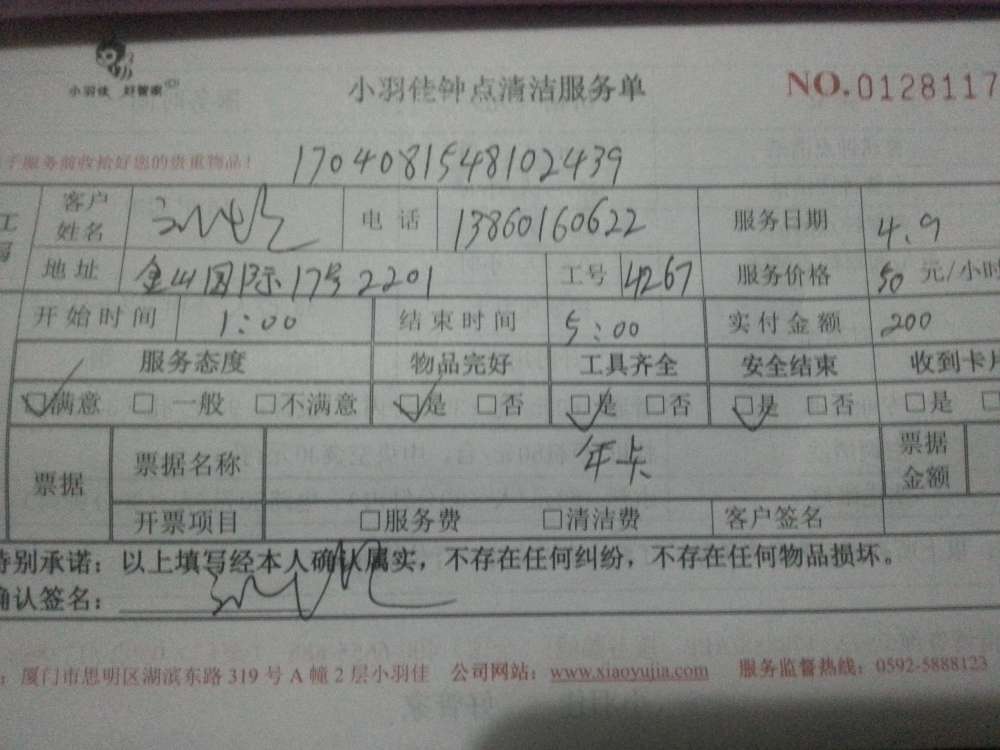 小羽佳 好管家
小羽佳钟点清洁服务单 NO.0128117
服务前收拾好您的贵重物品！ 1704081548102439
客户姓名 电话 13860160622 服务日期 4.9
地址 金山国际17号2201 工号 4267 服务价格 50 元/小时
开始时间 1:00 结束时间 5:00 实付金额 200
服务态度 物品完好 工具齐全 安全结束 收到卡片
☑满意 □一般 □不满意 ☑是 □否 ☑是 □否 ☑是 □否 □是 □
票据 票据名称 年卡 票据金额
开票项目 □服务费 □清洁费 客户签名
特别承诺：以上填写经本人确认属实，不存在任何纠纷，不存在任何物品损坏。
确认签名：
：厦门市思明区湖滨东路 319 号 A 幢 2 层小羽佳 公司网站：www.xiaoyujia.com 服务监督热线：0592-5888123